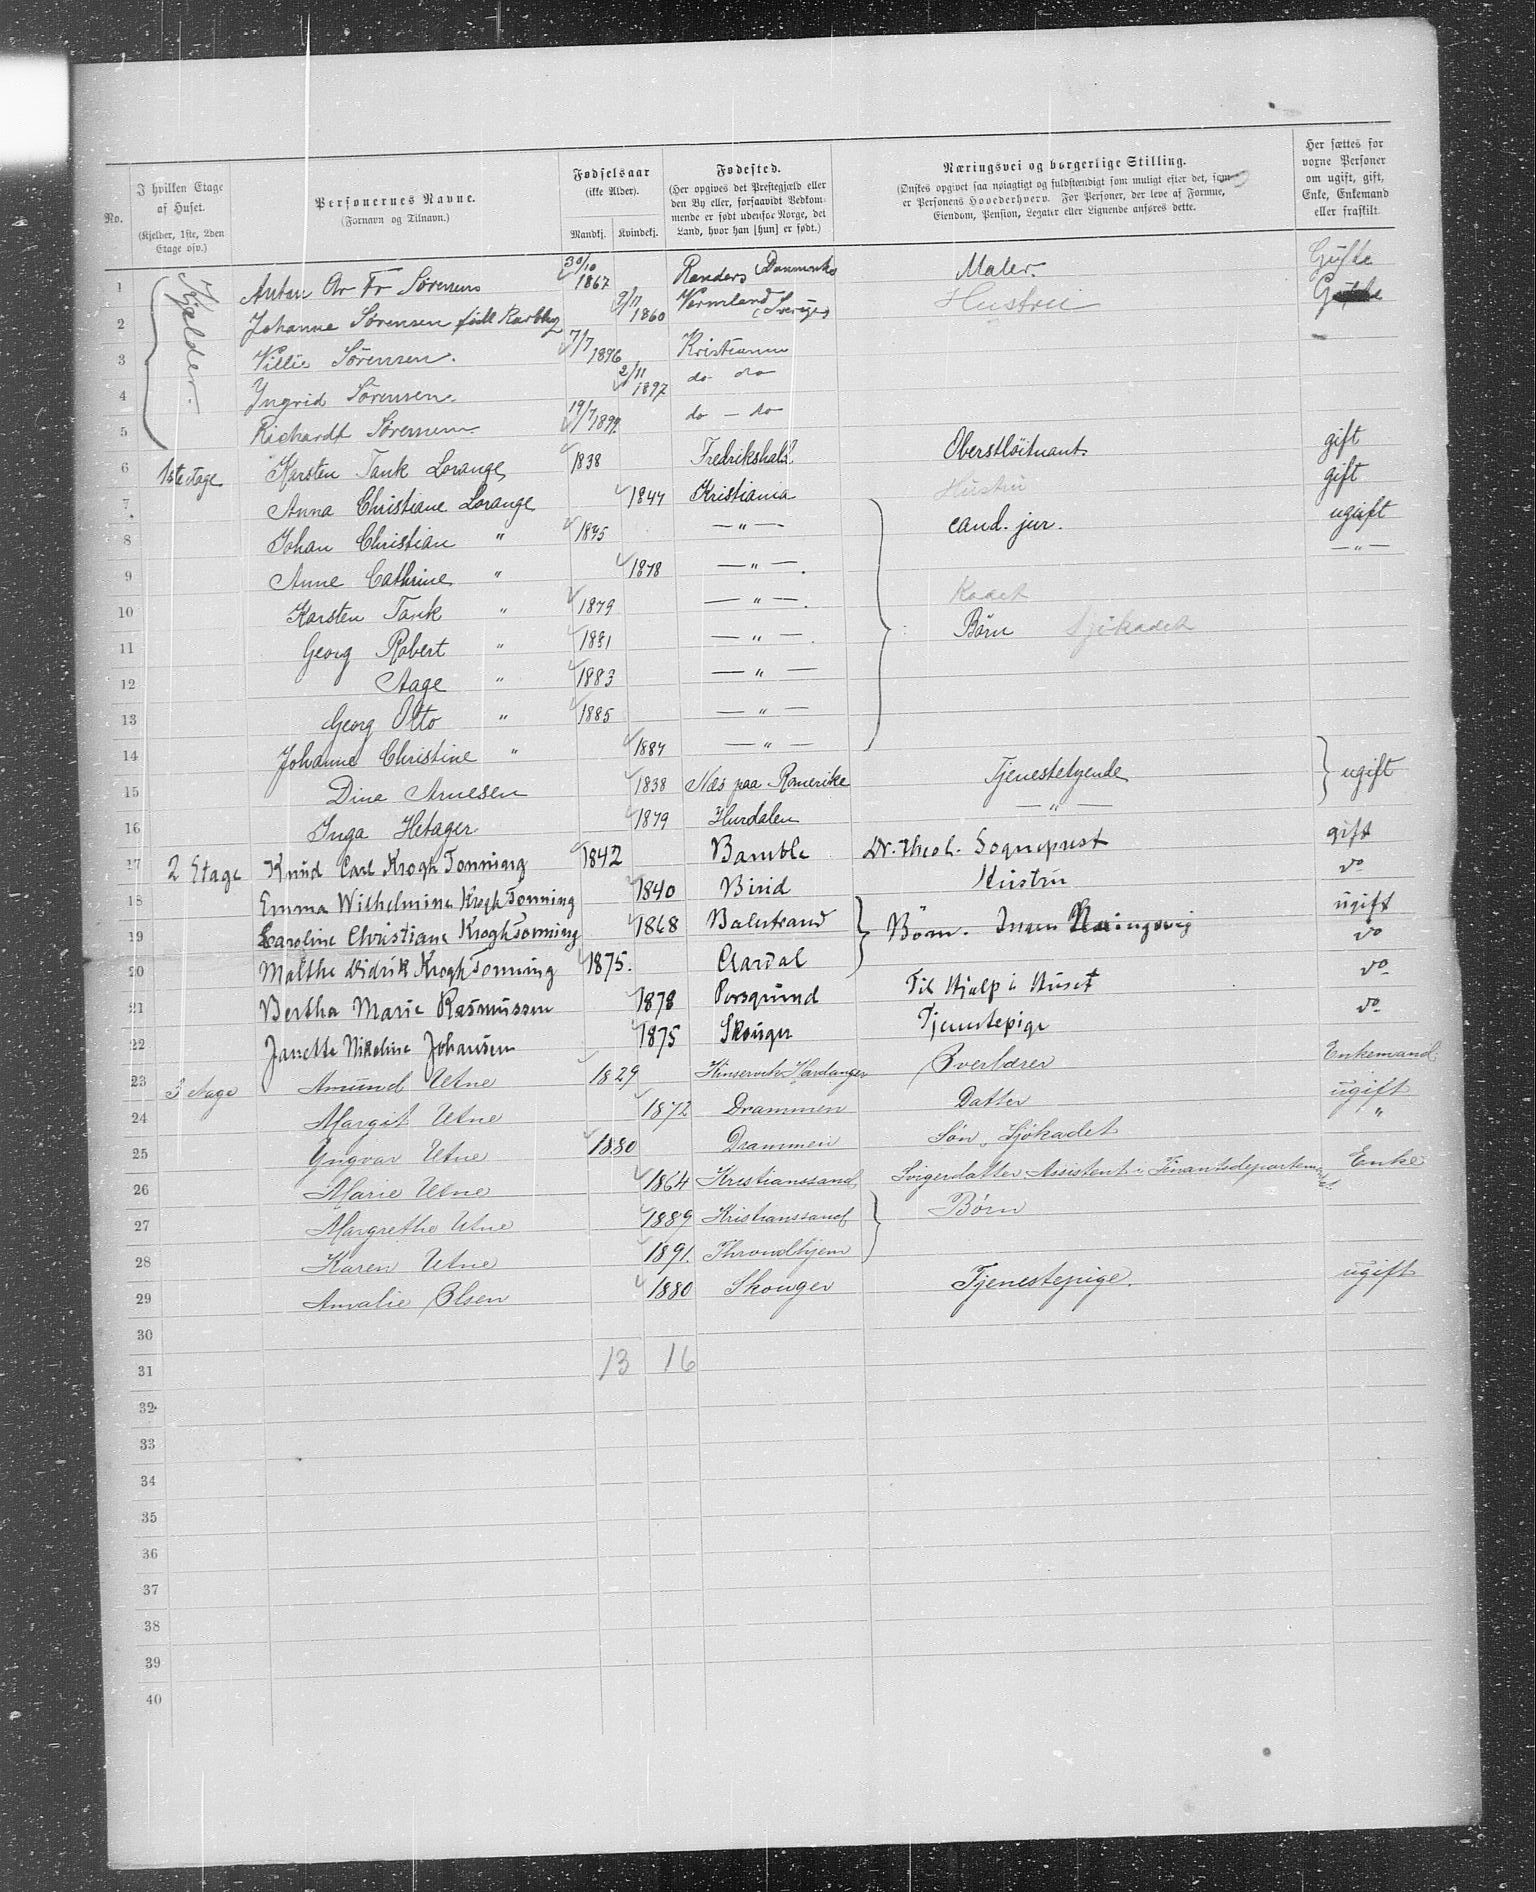 No. I hvilken Etage af Huset. (Kjelder, 1ste, 2den Etage osv.) Personernes Navne. (Fornavn og Tilnavn.) Fødselsaar (ikke Alder). Mandkj. Kvindekj. Fødested. (Her opgives det Prestegjæld eller den By eller, forsaavidt Vedkommende er født udenfor Norge, det Land, hvor han [hun] er født.) Næringsvei og borgerlige Stilling. (Ønskes opgivet saa nøiagtigt og fuldstændigt som muligt efter det, som er Personens Hovederhverv. For Personer, der leve af Formue, Eiendom, Pension, Legater eller Lignende anføres dette. Her sættes for voxne Personer om ugift, gift, Enke, Enkemand eller fraskilt.
1 Kjelder. Anton Chr Fr Sörensen 30/10 1867 Randers (Danmark) Maler. Gifte
2 Johanne Sörensen födt Karlby 9/11 1860 Vermland (Sverige) Hustru
3 Villie Sörensen. 7/7 1896 Kristiania
4 Yngrid Sörensen. 2/11 1897 do do
5 Richardt Sörensen. 19/7 1899. do — do
6 1ste Etage Karsten Tank Lorange 1838 Fredrikshald Oberstlöitnant gift
7 Anna Christiane Lorange 1844 Kristiania Hustru gift
8 Johan Christian " 1875 — " — cand. jur. ugift
9 Anne Cathrine " 1878 — " — . — " —
10 Karsten Tank " 1879 — " — . Kadet
11 Georg Robert " 1881 — " — . Börn Sjökadet
12 Aage " 1883 — " —
13 Georg Otto " 1885 — " —
14 Johanne Christine " 1887 — " —
15 Dina Arnesen 1838 Næs paa Romerike Tjenestetyende ugift
16 Inga Hetager 1879 Hurdalen — " —
17 2 Etage Knud Carl Krogh Tonning 1842 Bamble Dr. theol. Sogneprest gift
18 Emma Wilhelmine Krogh Tonning 1840 Birid Hustru do
19 Caroline Christiane Krogh Tonning 1868 Balestrand Börn. Ingen Næringsvej ugift
20 Malthe Didrik Krogh Tonning 1875. Aardal do
21 Bertha Marie Rasmussen 1878 Porsgrund Til Hjelp i Huset do
22 Janette Nikoline Johansen 1875 Skouger Tjenestepige do
23 3 Etage Amund Utne 1829 Kinservik Hardanger Overlærer Enkemand
24 Margit Utne 1872 Drammen Datter ugift
25 Yngvar Utne 1880 Drammen Sön, Sjökadet "
26 Marie Utne 1864 Kristianssand Svigerdatter Assistent i Finantsdepartementet Enke
27 Margrethe Utne 1889 Kristianssand Börn
28 Karen Utne 1891. Throndhjem
29 Amalie Olsen 1880 Skouger Tjenestepige. ugift
30
31 13 16
32
33
34
35
36
37
38
39
40